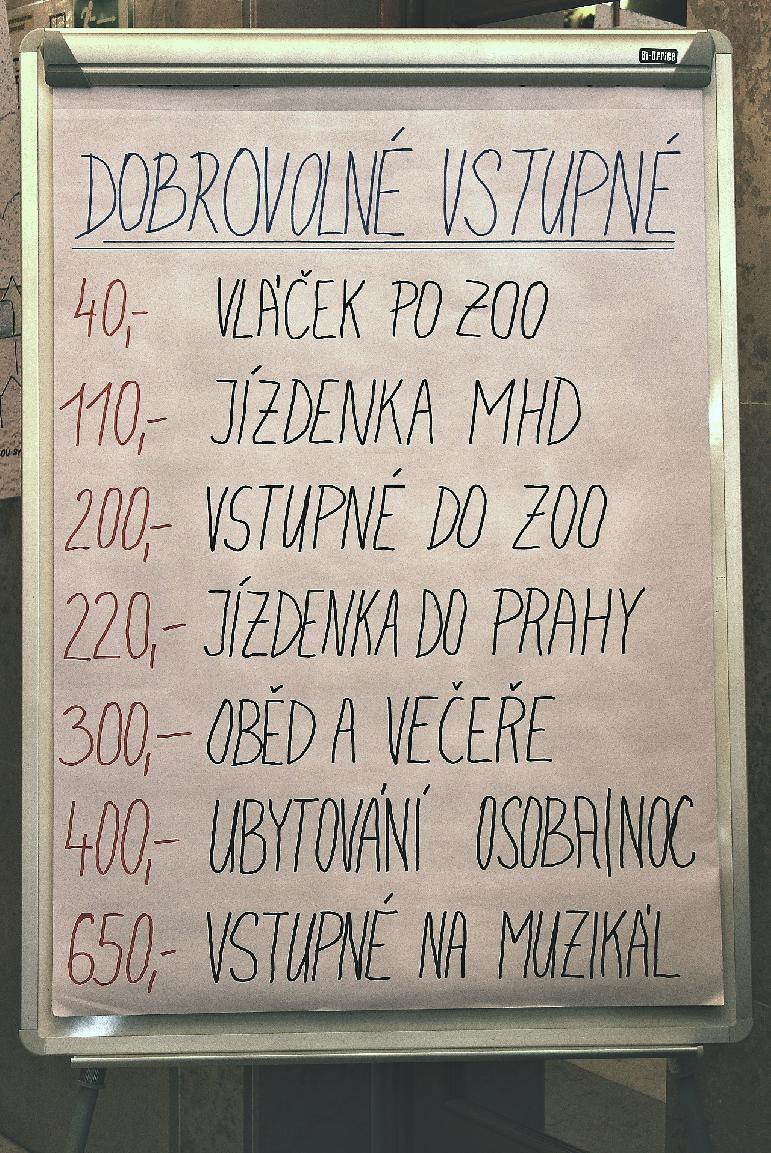 Bi-Office
DOBROVOLNÉ VSTUPNÉ
40,- VLÁČEK PO ZOO
110,- JÍZDENKA MHD
200,- VSTUPNÉ DO ZOO
220,- JÍZDENKA DO PRAHY
300,- OBĚD A VEČEŘE
400,- UBYTOVÁNÍ OSOBA/NOC
650,- VSTUPNÉ NA MUZIKÁL